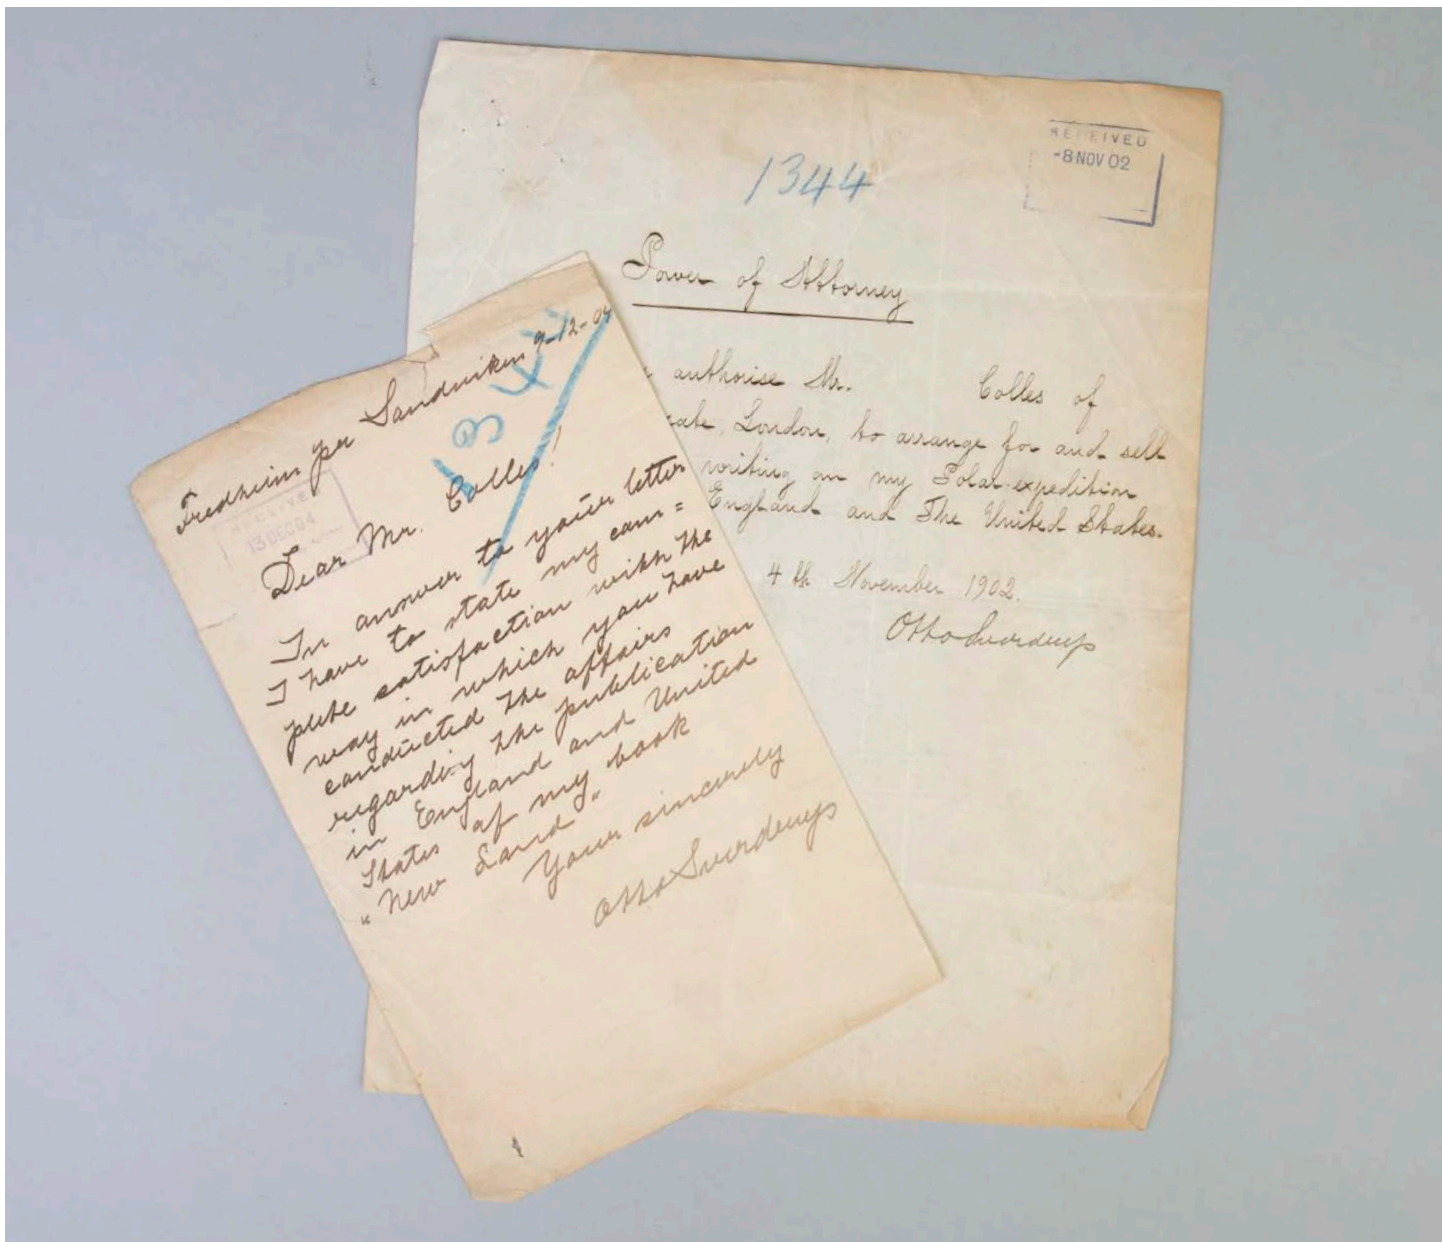 RECEIVED
-8 NOV 02
1344
Power of Attorney
authorise Mr. Colles of
gate, London, to arrange for and sell
writing on my Polar-expedition
England and The United States.
4th November 1902.
Otto Sverdrup
Fredheim per Sandviken 9-12-04
1344
RECEIVED
13 DEC 04
Dear Mr. Colles!
In answer to your letter
I have to state my com=
plete satisfaction with the
way in which you have
conducted the affairs
regarding the publication
in England and United
States of my book
"New Land"
Your sincerely
Otto Sverdrup